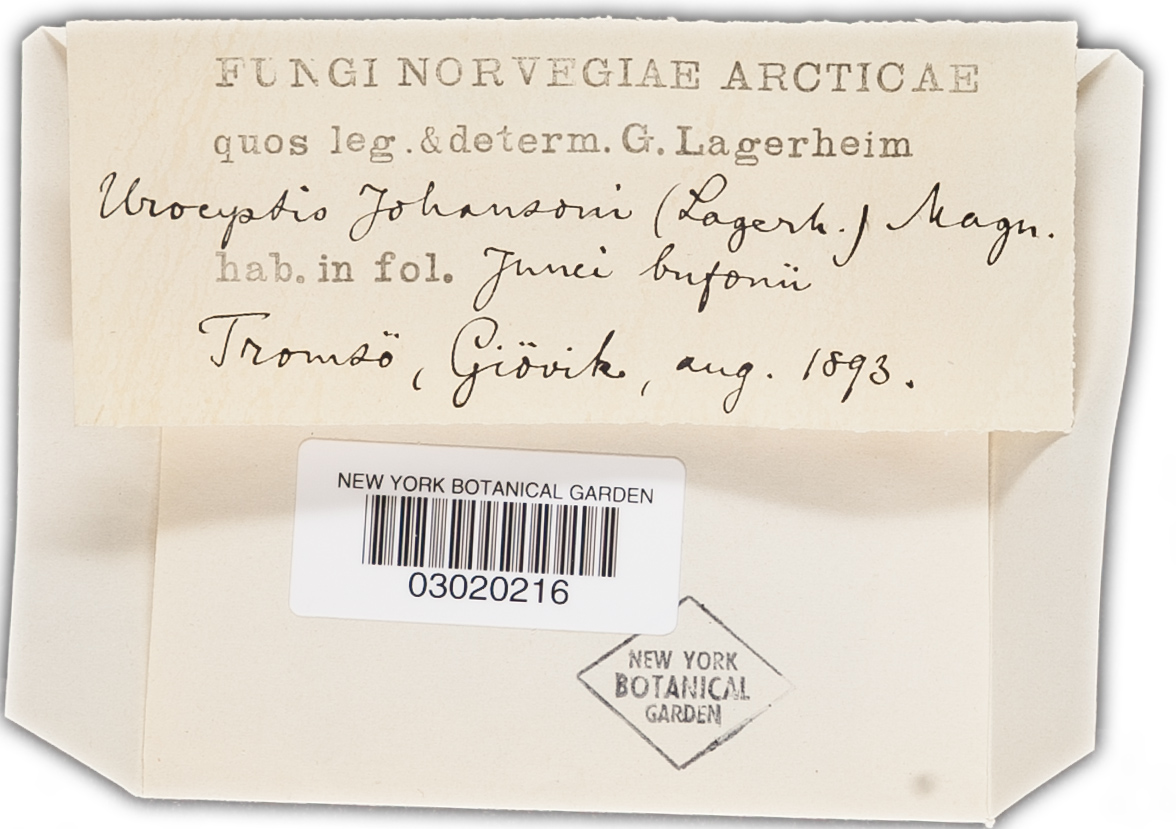 FUNGI NORVEGIAE ARCTICAE
quos leg. & determ. G. Lagerheim
Urocystis Johansonii (Lagerh.) Magn.
hab. in fol. Junci bufonii
Tromsö, Giövik, aug. 1893.
NEW YORK BOTANICAL GARDEN
03020216
NEW YORK
BOTANICAL
GARDEN